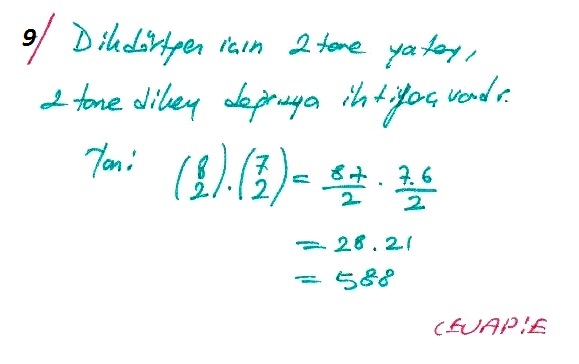 9/ Dikdörtgen için 2 tane yatay,
2 tane dikey doğruya ihtiyaç vardır.
Yani (8 2).(7 2) = 8.7/2 . 7.6/2
= 28.21
= 588
CEVAP:E